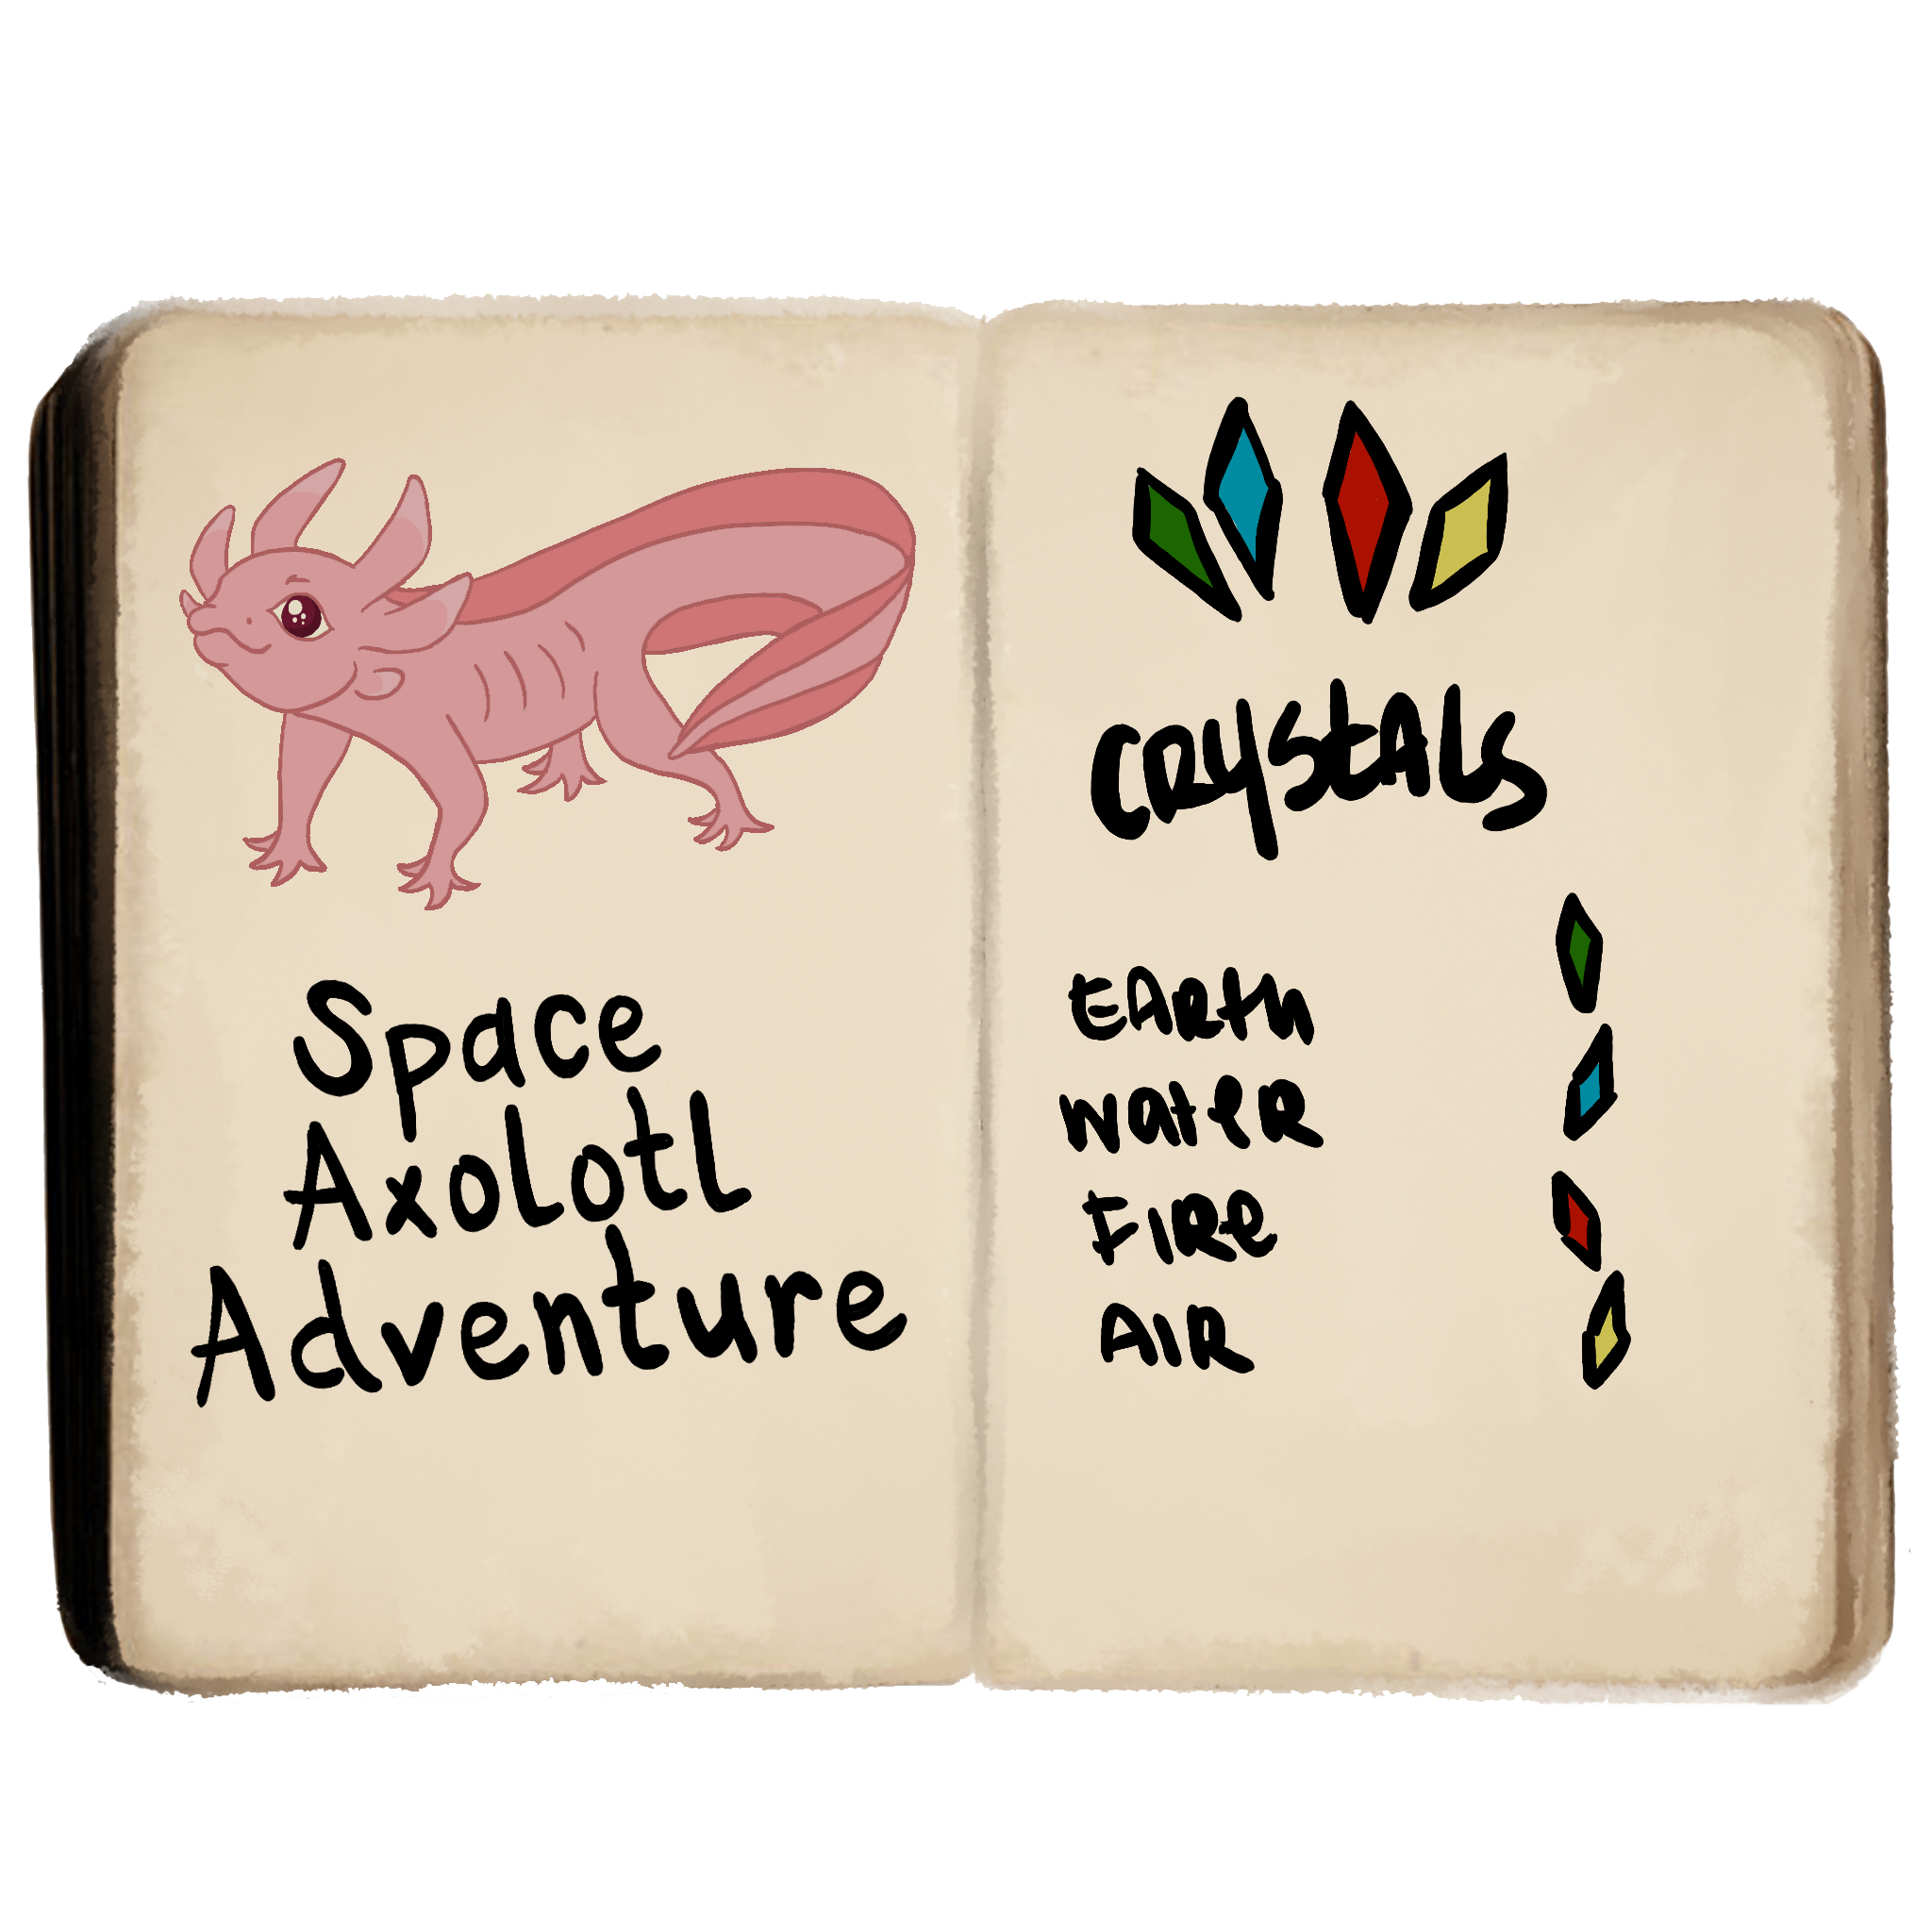 Space
Axolotl
Adventure
CRYStALS
EARth
WateR
FIRe
AIR